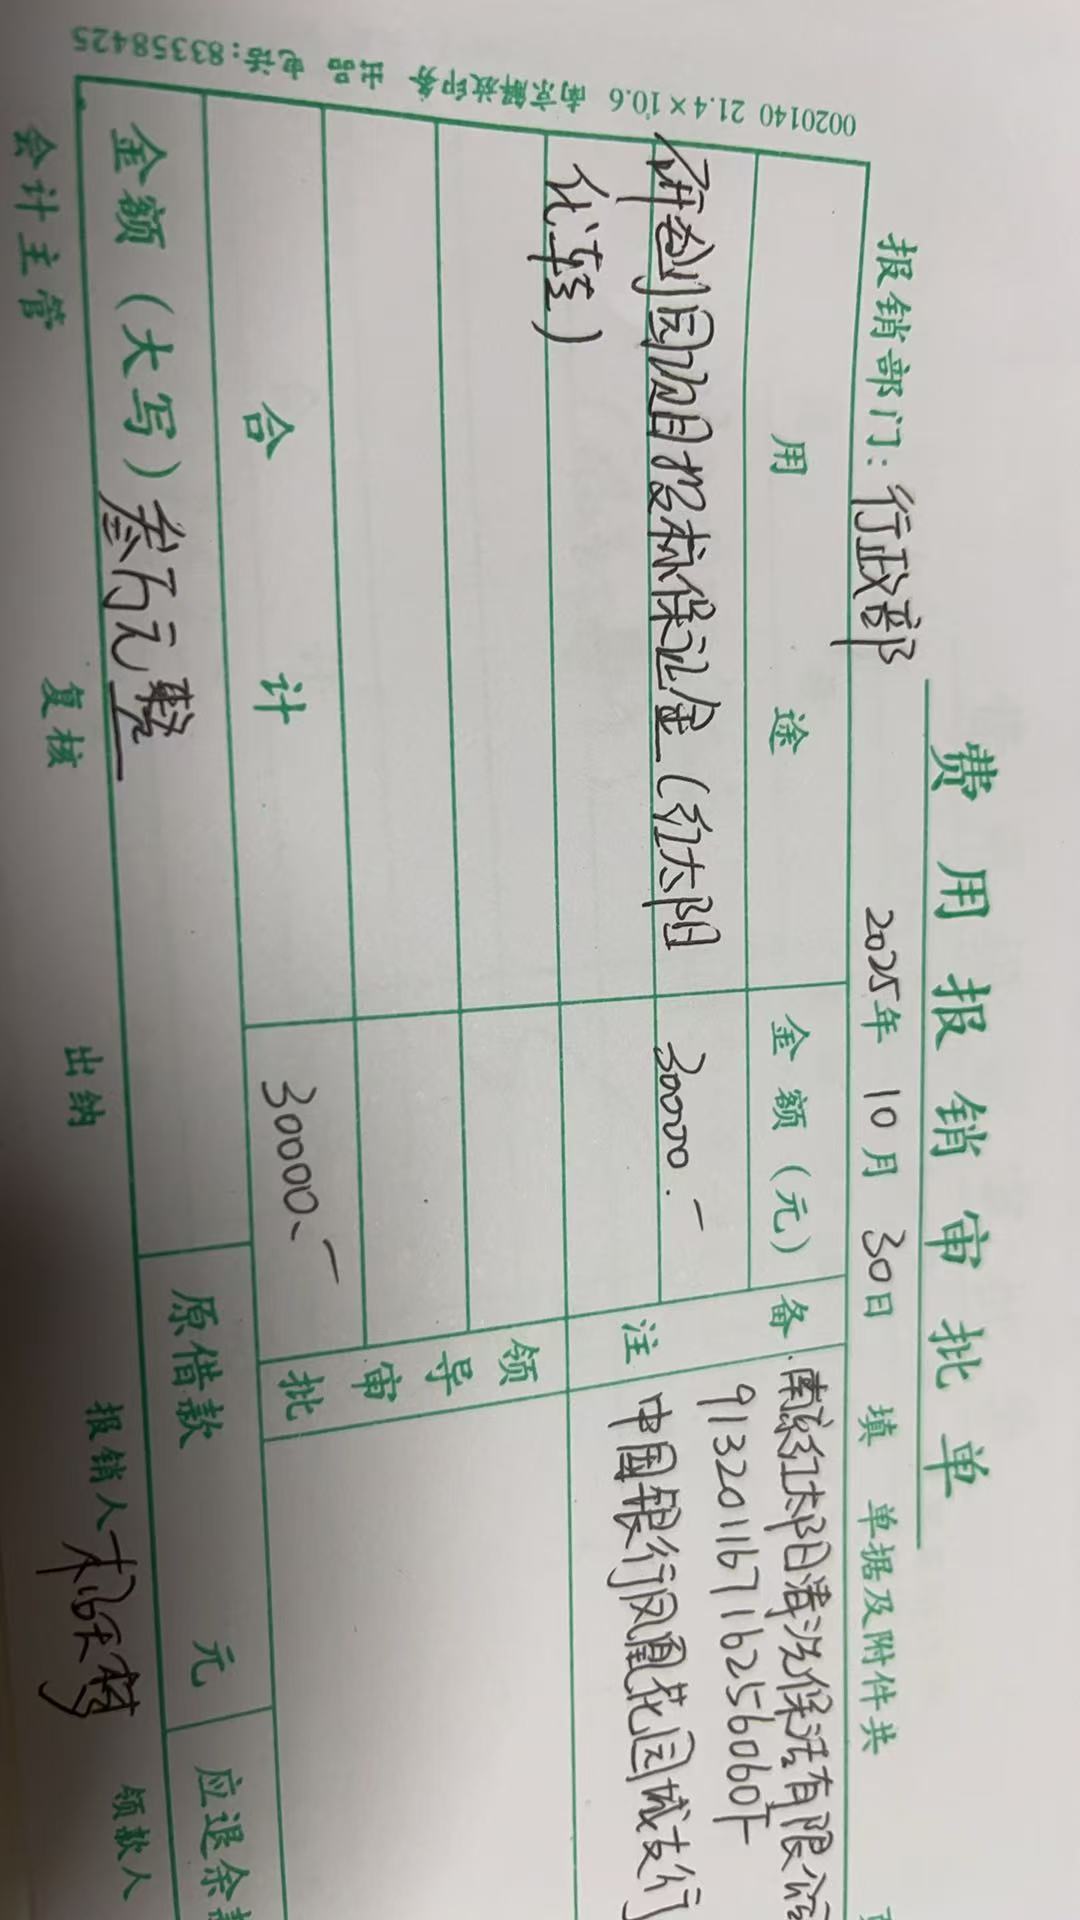 费用报销审批单
报销部门：行政部 2025年 10月 30日 填 单据及附件共
用途 金额（元） 备注
研创园项目投标保证金（红太阳 30000.—
化转）
南京红太阳清洗保洁有限公司
中国银行凤凰花园城支行
领导审批
合计 30000.—
金额（大写）叁万元整 原借款 元 应退余
会计主管 复核 出纳 报销人 领款人
0020140 21.4×10.6 南京解放印务 出品 电话：83358425